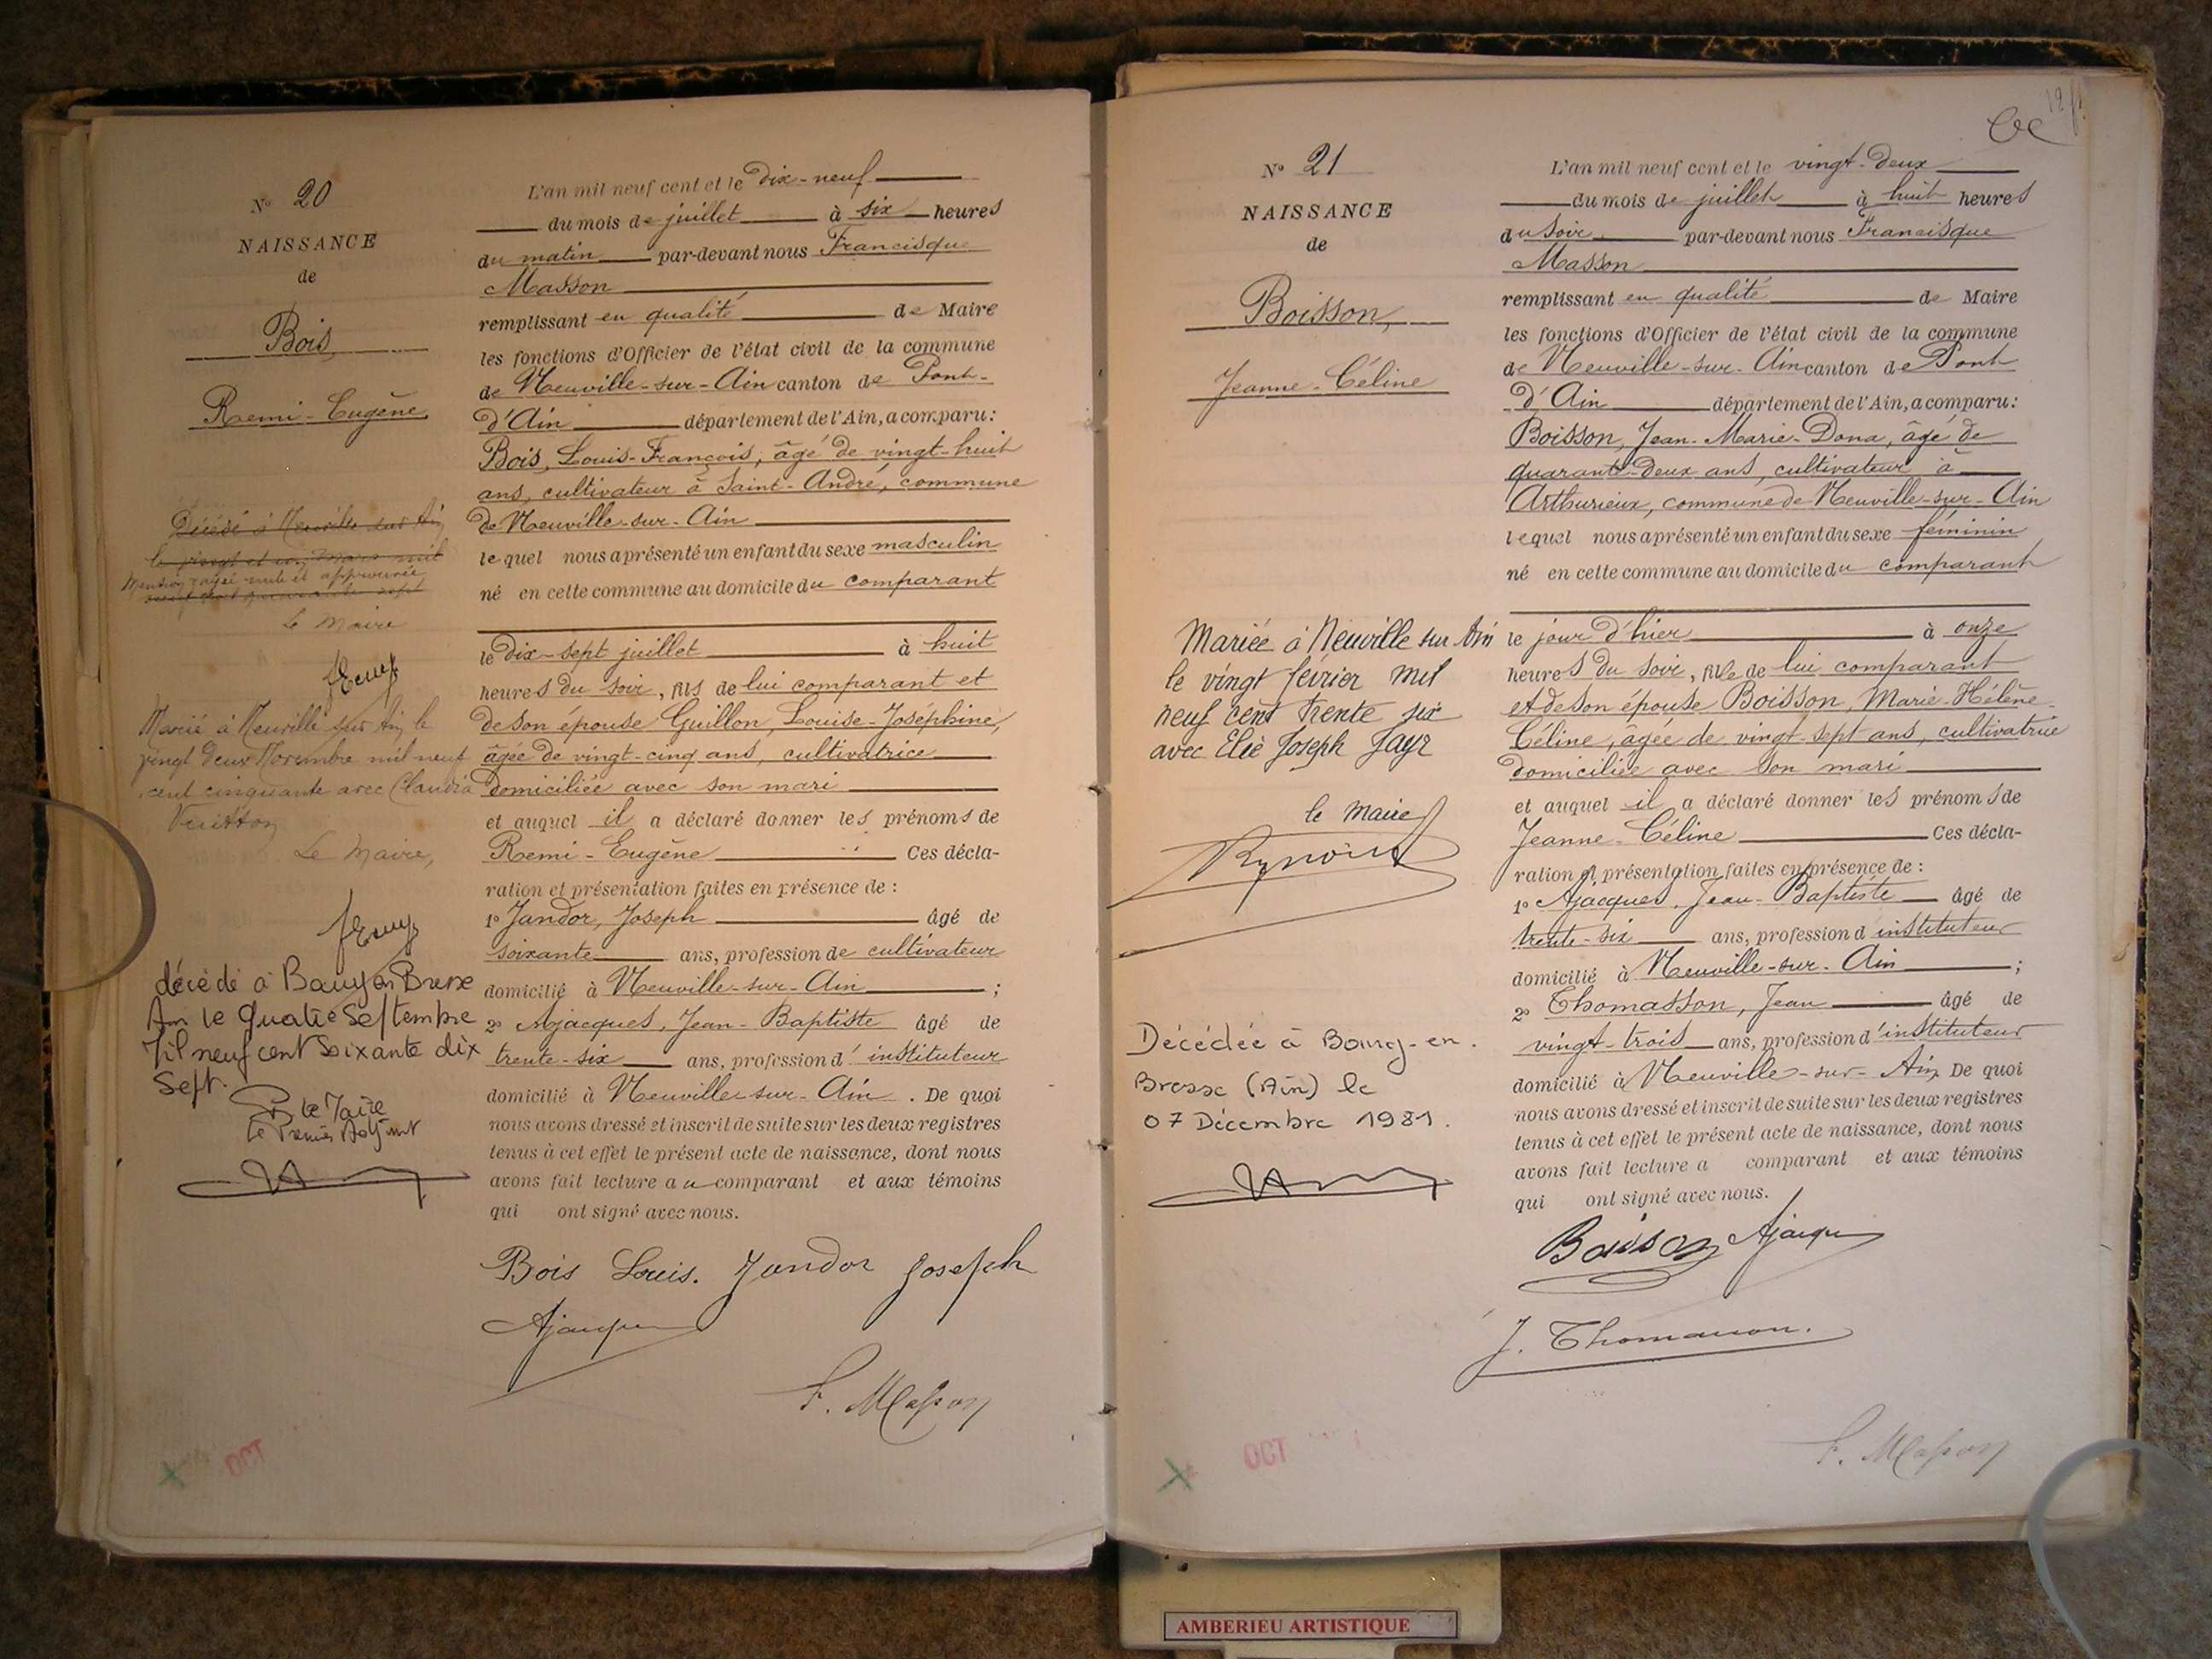 N° 20
NAISSANCE
de
Bois
Remi-Eugène
Décédé à Neuville sur Ain
le vingt et un mars mil
Mention rayée nulle et approuvée
Le Maire
Marié à Neuville sur Ain le
vingt deux Novembre mil neuf
cent cinquante avec Claudia
Le Maire,
décédé à Bourg en Bresse
Ain le quatre Septembre
Mil neuf cent soixante dix
Sept.
P. le Maire
le Premier Adjoint
L'an mil neuf cent et le dix-neuf
du mois de juillet à six heures
du matin par-devant nous Francisque
Masson
remplissant en qualité de Maire
les fonctions d'Officier de l'état civil de la commune
de Neuville-sur-Ain canton de Pont-
d'Ain département de l'Ain, a comparu:
Bois, Louis-François, âgé de vingt-huit
ans, cultivateur à Saint-André, commune
de Neuville-sur-Ain
lequel nous a présenté un enfant du sexe masculin
né en cette commune au domicile du comparant
le dix-sept juillet à huit
heures du soir, fils de lui comparant et
de son épouse Guillon, Louise-Joséphine,
âgée de vingt-cinq ans, cultivatrice
domiciliée avec son mari
et auquel il a déclaré donner les prénoms de
Remi-Eugène Ces décla-
ration et présentation faites en présence de :
1° Jandor, Joseph âgé de
soixante ans, profession de cultivateur
domicilié à Neuville-sur-Ain ;
2° Ajacques, Jean-Baptiste âgé de
trente-six ans, profession d'instituteur
domicilié à Neuville-sur-Ain. De quoi
nous avons dressé et inscrit de suite sur les deux registres
tenus à cet effet le présent acte de naissance, dont nous
avons fait lecture au comparant et aux témoins
qui ont signé avec nous.
Bois Louis. Jandor Joseph
Ajacques
F. Masson
OCT
N° 21
NAISSANCE
de
Boisson,
Jeanne-Céline
Mariée à Neuville sur Ain
le vingt février mil
neuf cent trente six
avec Elie Joseph Jayr
le Maire
Décédée à Bourg-en-
Bresse (Ain) le
07 Décembre 1981.
L'an mil neuf cent et le vingt-deux
du mois de juillet à huit heures
du soir par-devant nous Francisque
Masson
remplissant en qualité de Maire
les fonctions d'Officier de l'état civil de la commune
de Neuville-sur-Ain canton de Pont
d'Ain département de l'Ain, a comparu:
Boisson, Jean-Marie-Dona, âgé de
quarante-deux ans, cultivateur à
Arthurieux, commune de Neuville-sur-Ain
lequel nous a présenté un enfant du sexe féminin
né en cette commune au domicile du comparant
le jour d'hier à onze
heures du soir, fille de lui comparant
et de son épouse Boisson, Marie-Hélène-
Céline, agée de vingt-sept ans, cultivatrice
domiciliée avec son mari
et auquel il a déclaré donner les prénoms de
Jeanne-Céline Ces décla-
ration et présentation faites en présence de :
1° Ajacques, Jean-Baptiste âgé de
trente-six ans, profession d instituteur
domicilié à Neuville-sur-Ain ;
2° Thomasson, Jean âgé de
vingt-trois ans, profession d'instituteur
domicilié à Neuville-sur-Ain De quoi
nous avons dressé et inscrit de suite sur les deux registres
tenus à cet effet le présent acte de naissance, dont nous
avons fait lecture a comparant et aux témoins
qui ont signé avec nous.
Boisson Ajacques
J. Thomasson.
F. Masson
OCT
AMBERIEU ARTISTIQUE